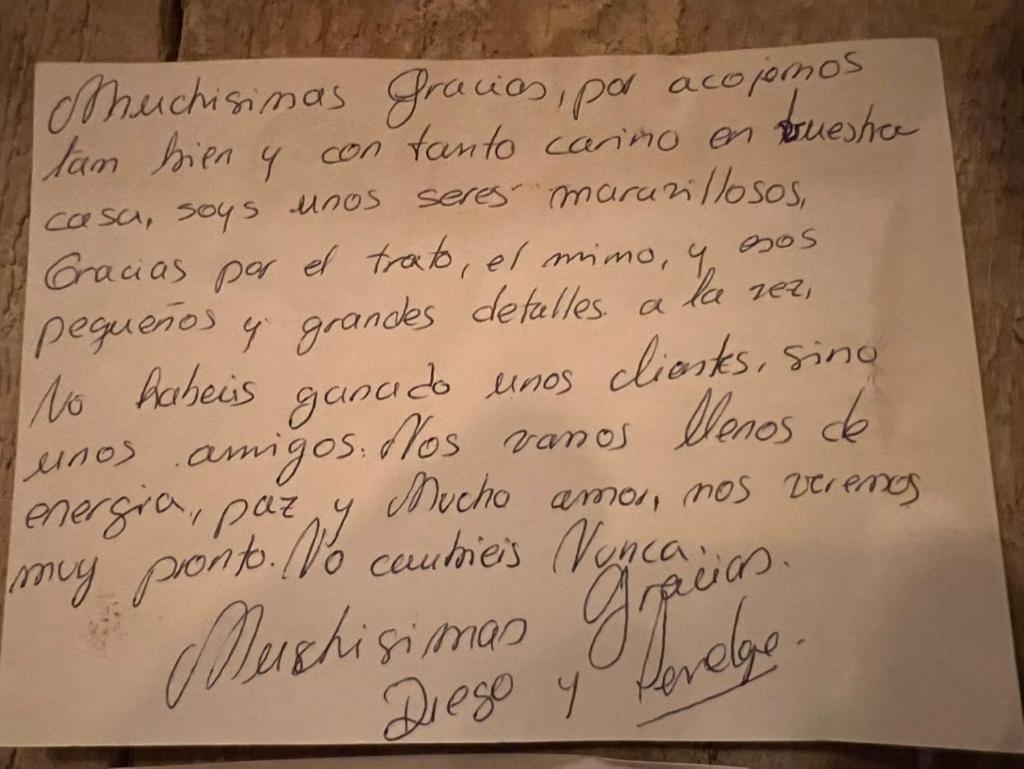 Muchisimas Gracias, por acojernos
tam bien y con tanto carino en vuestra
casa, soys unos seres maravillosos,
Gracias por el trato, el mimo, y esos
pequeños y grandes detalles a la vez,
No habeis ganado unos clientes, sino
unos amigos. Nos vamos llenos de
energia, paz y Mucho amor, nos veremos
muy pronto. No cambieis Nunca.
Muchisimas Gracias.
Diego y